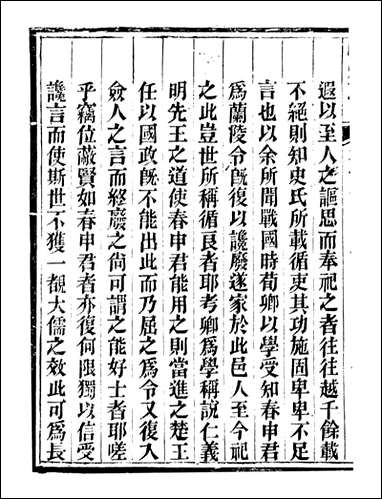 遐以至人之謳思而奉祀之者往往越千餘載
不絕則知史氏所載循吏其功施固卑卑不足
言也以余所聞戰國時荀卿以學受知春申君
爲蘭陵令旣復以讒廢遂家於此邑人至今祀
之此豈世所稱循良者耶考卿爲學稱說仁義
明先王之道使春申君能用之則當進之楚王
任以國政旣不能出此而乃屈之爲令又復入
僉人之言而輕廢之尚可謂之能好士者耶嗟
乎竊位蔽賢如春申君者亦復何限獨以信受
讒言而使斯世不獲一覩大儒之效此可爲長